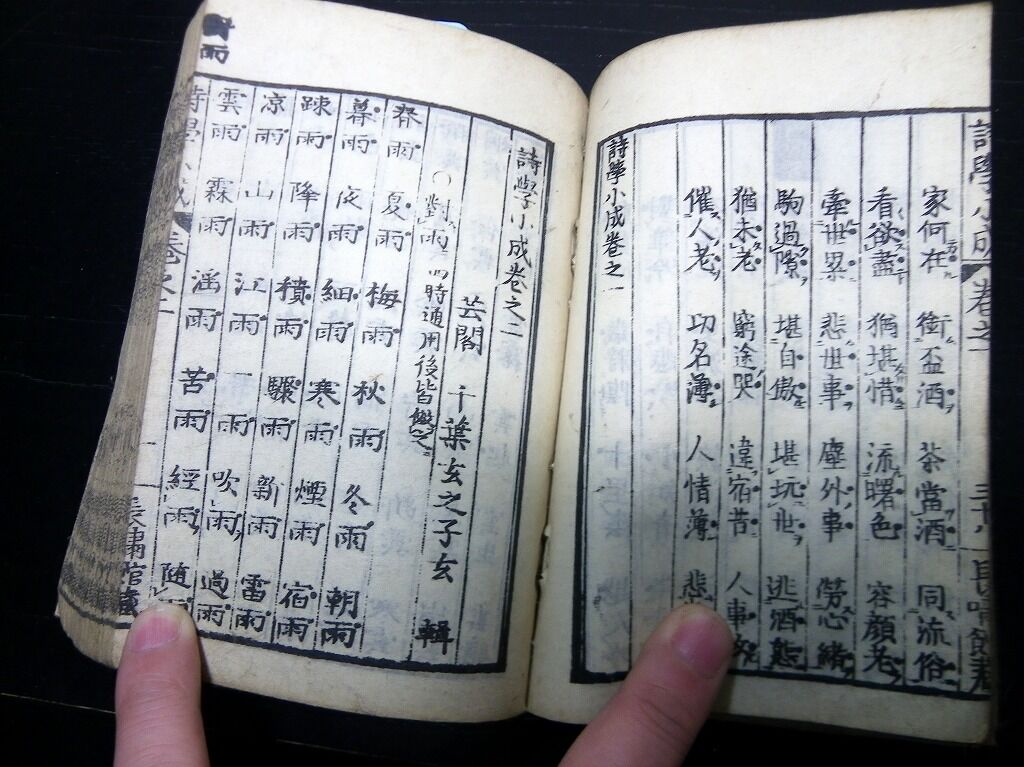 詩學小成 卷之一 三十八
家何在 銜盃酒 茶當酒 同流俗
看欲盡 猶堪惜 流曙色 容顏老
牽世累 悲世事 塵外事 勞心緒
駒過隙 堪自傲 堪玩世 逃酒態
猶未老 窮途哭 違宿昔 人事
催人老 功名薄 人情薄 悲
詩學小成卷之一
詩學小成卷之二
芸閣 千葉玄之子玄 輯
○對雨 四時通用後皆倣之
春雨 夏雨 梅雨 秋雨 冬雨 朝雨
暮雨 夜雨 細雨 寒雨 煙雨 宿雨
疎雨 降雨 積雨 驟雨 新雨 雷雨
凉雨 山雨 江雨 雨 吹雨 過雨
雲雨 霖雨 滛雨 苦雨 經雨 随雨
詩學小成 卷之二 一 長嘯館藏